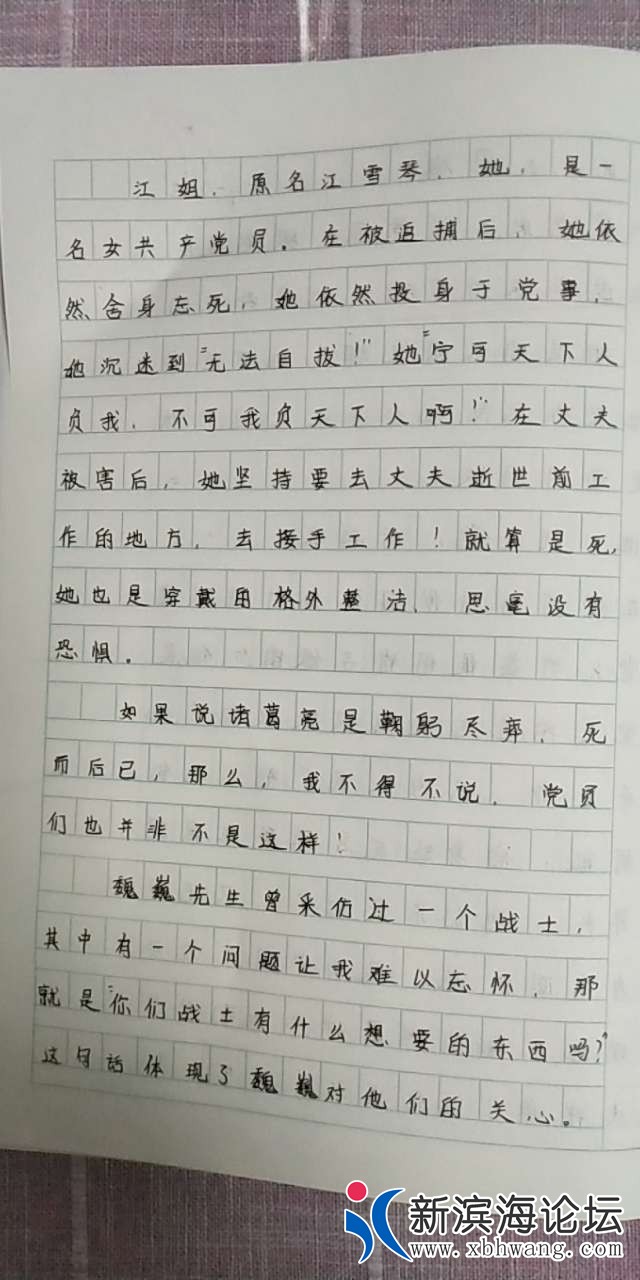 江姐，原名江雪琴，她，是一
名女共产党员。在被追捕后，她依
然舍身忘死，她依然投身于党事，
她沉迷到“无法自拔！”她“宁可天下人
负我，不可我负天下人啊！”在丈夫
被害后，她坚持要去丈夫逝世前工
作的地方，去接手工作！就算是死，
她也是穿戴的格外整洁，思毫没有
恐惧。
如果说诸葛亮是鞠躬尽瘁，死
而后已，那么，我不得不说，党员
们也并非不是这样！
魏巍先生曾采仿过一个战士，
其中有一个问题让我难以忘怀，那
就是“你们战士有什么想要的东西吗？”
这句话体现了魏巍对他们的关心。
新滨海论坛
www.xbhwang.com